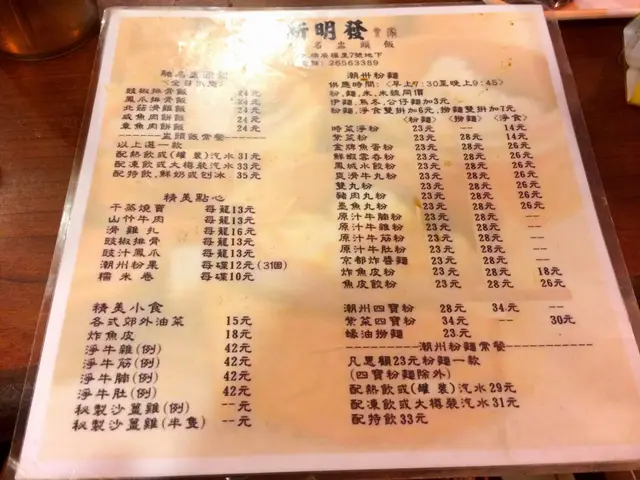 新明發
名盅頭飯
7號地下
26563389
豉椒排骨飯 24元
鳳爪排骨飯 24元
北菇滑雞飯 24元
咸魚肉餅飯 24元
章魚肉餅飯 24元
盅頭飯常餐
以上選一款
配熱飲或(罐裝)汽水31元
配凍飲或大樽裝汽水33元
配特飲,鮮奶或刨冰 35元
精美點心
干蒸燒賣 每籠13元
山竹牛肉 每籠13元
滑雞扎 每籠16元
豉椒排骨 每籠13元
豉汁鳳爪 每籠13元
潮州粉果 每碟12元(3個)
糯米卷 每碟10元
精美小食
各式郊外油菜 15元
炸魚皮 18元
淨牛雜(例) 42元
淨牛筋(例) 42元
淨牛腩(例) 42元
淨牛肚(例) 42元
秘製沙薑雞(例) --元
秘製沙薑雞(半隻) --元
潮州粉麵
供應時間:(早上7:30至晚上9:45)
粉,麵,米,米線同價
伊麵,烏冬,公仔麵加3元
粉麵,淨食雙拼加6元,撈麵雙拼加7元
(粉麵) (撈麵) (淨食)
時菜淨粉 23元 -- 14元
紫菜粉 23元 28元 14元
金牌魚蛋粉 23元 28元 26元
鮮蝦雲吞粉 23元 28元 26元
鳳城水餃粉 23元 28元 26元
爽滑牛丸粉 23元 28元 26元
雙丸粉 23元 28元 26元
豬肉丸粉 23元 28元 26元
墨魚丸粉 23元 28元 26元
原汁牛腩粉 23元 28元 ---
原汁牛雜粉 23元 28元 ---
原汁牛筋粉 23元 28元 ---
原汁牛肚粉 23元 28元 ---
京都炸醬麵 23元 28元 --
炸魚皮粉 23元 28元 18元
魚皮餃粉 23元 28元 26元
潮州四寶粉 28元 34元 --
紫菜四寶粉 34元 -- 30元
蠔油撈麵 23元
潮州粉麵常餐
凡惠顧23元粉麵一款
(四寶粉麵除外)
配熱飲或(罐裝)汽水29元
配凍飲或大樽裝汽水31元
配特飲33元